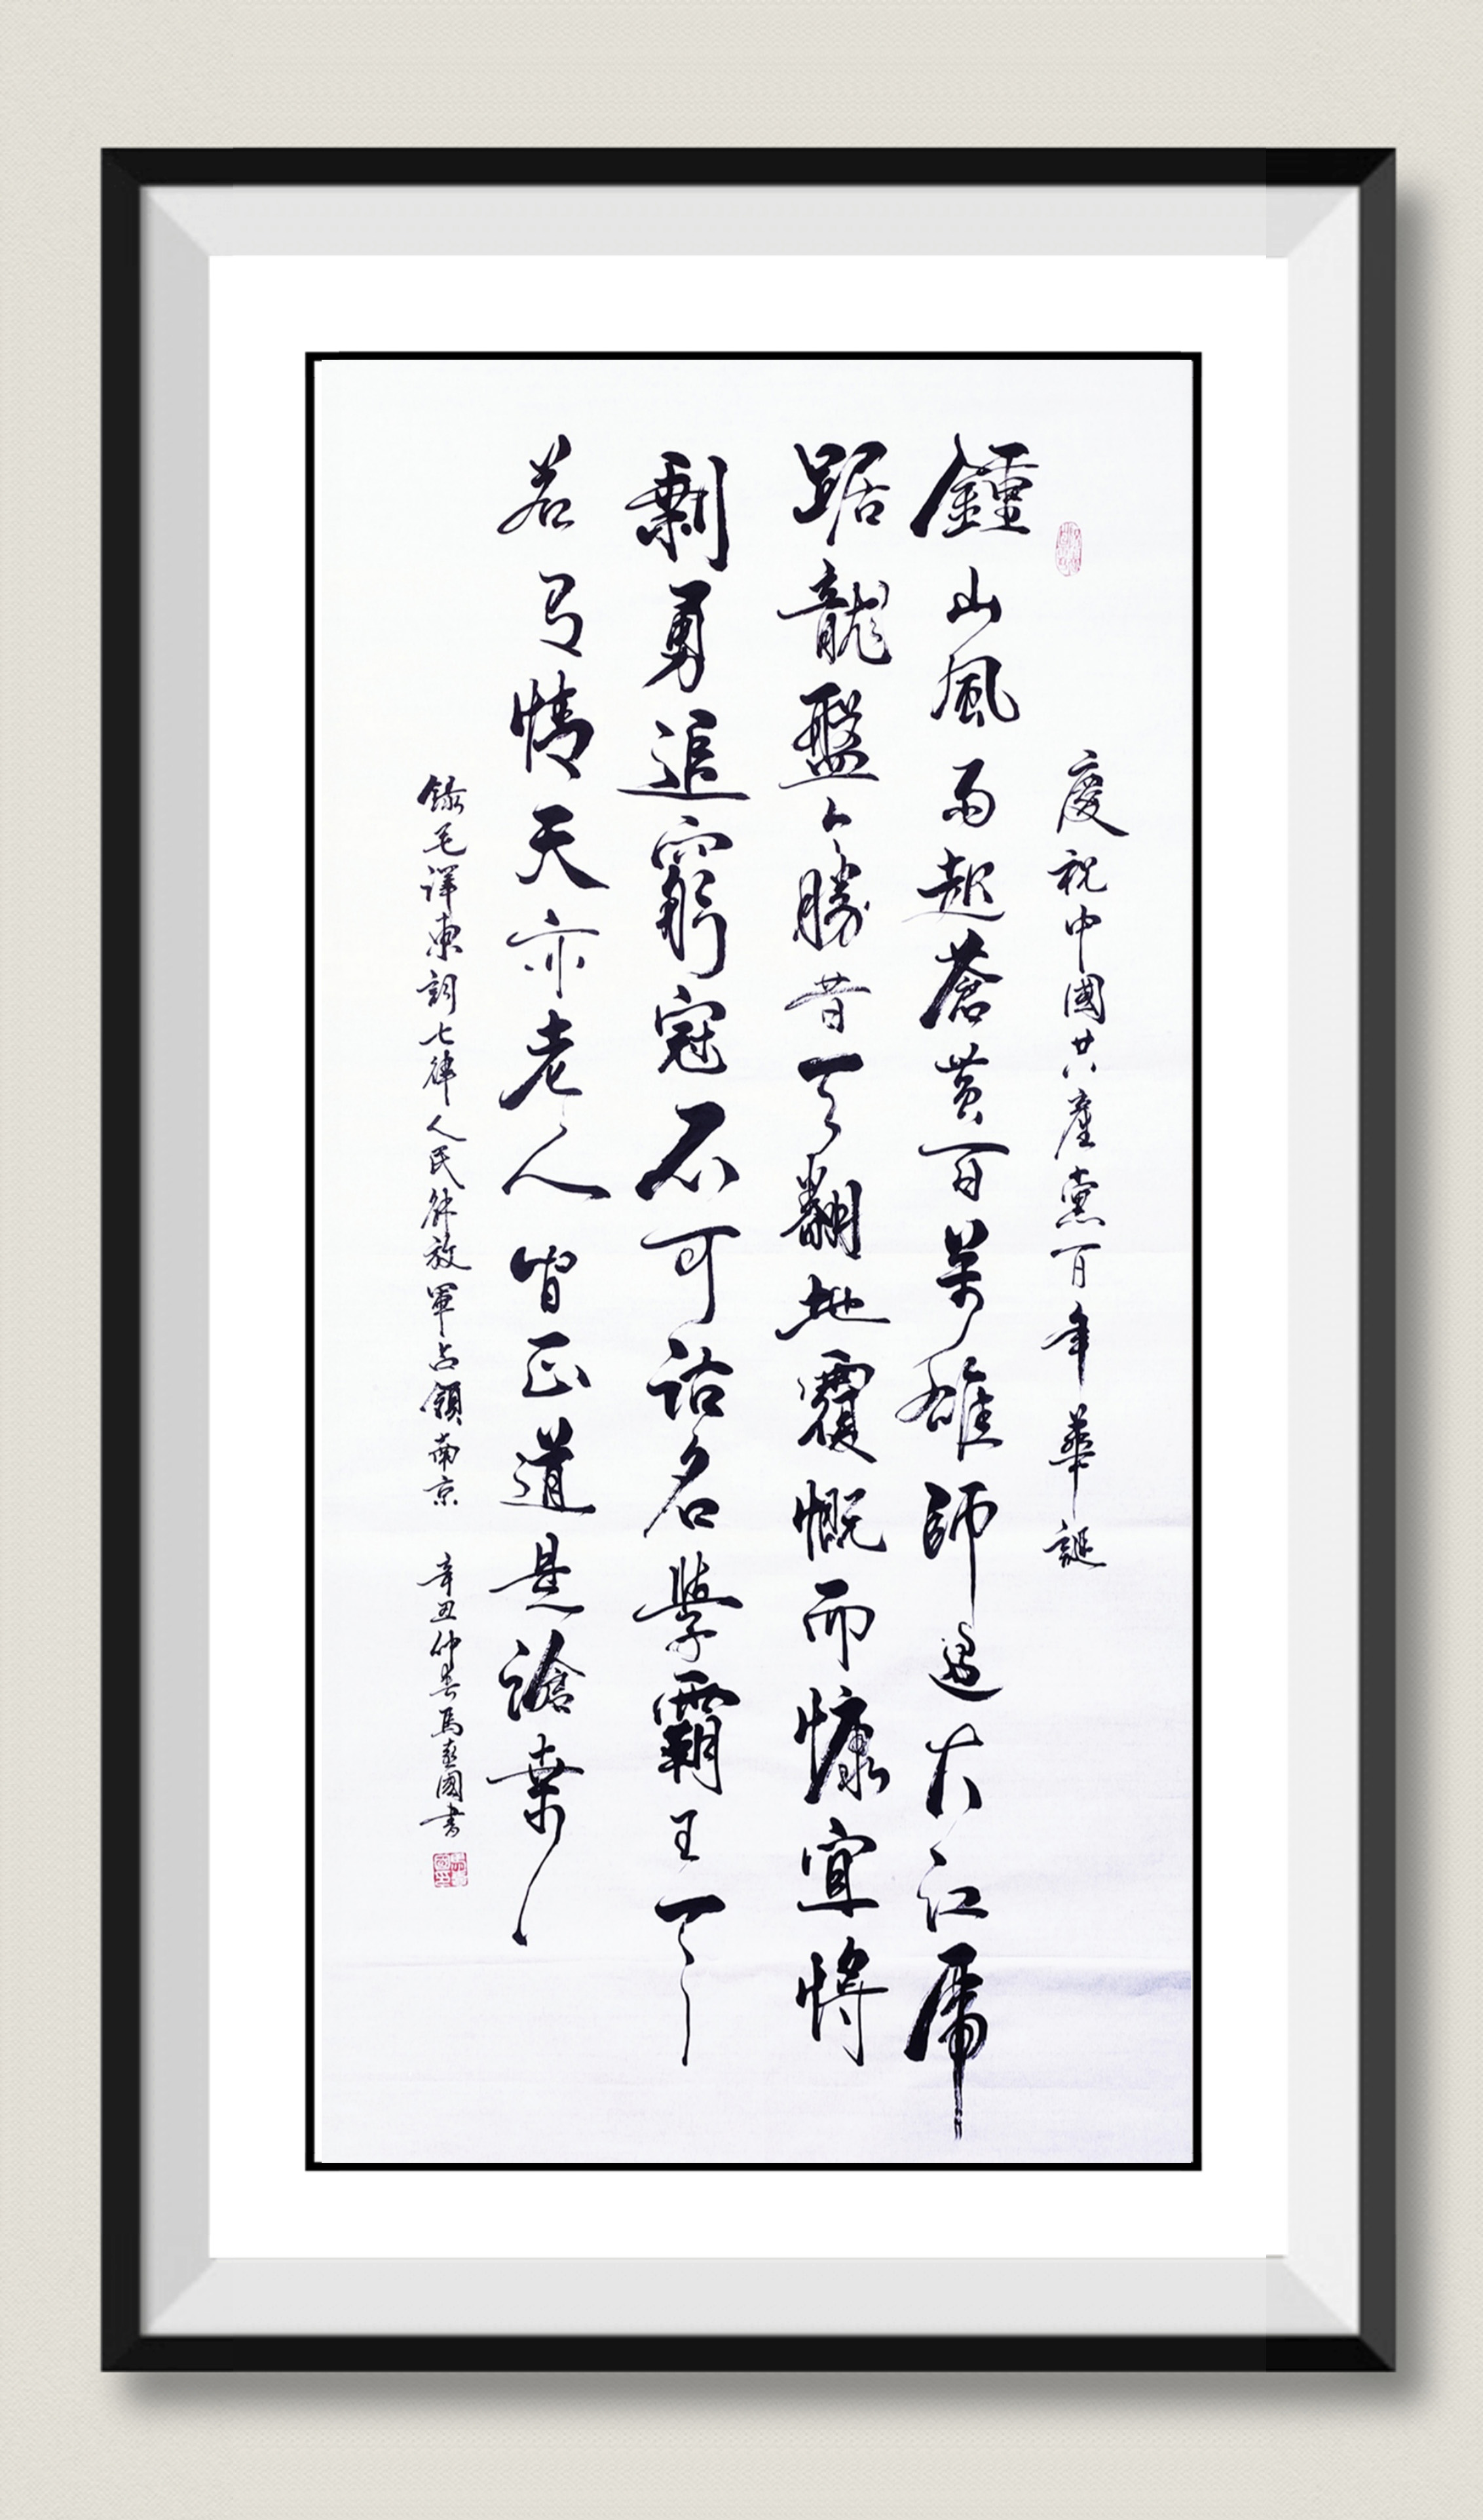 慶祝中國共產黨百年華誕
鍾山風雨起蒼黃百萬雄師過大江虎
踞龍盤今勝昔天翻地覆慨而慷宜將
剩勇追窮寇不可沽名學霸王天
若有情天亦老人間正道是滄桑
錄毛澤東詞七律人民解放軍占領南京 辛丑仲春馬國書